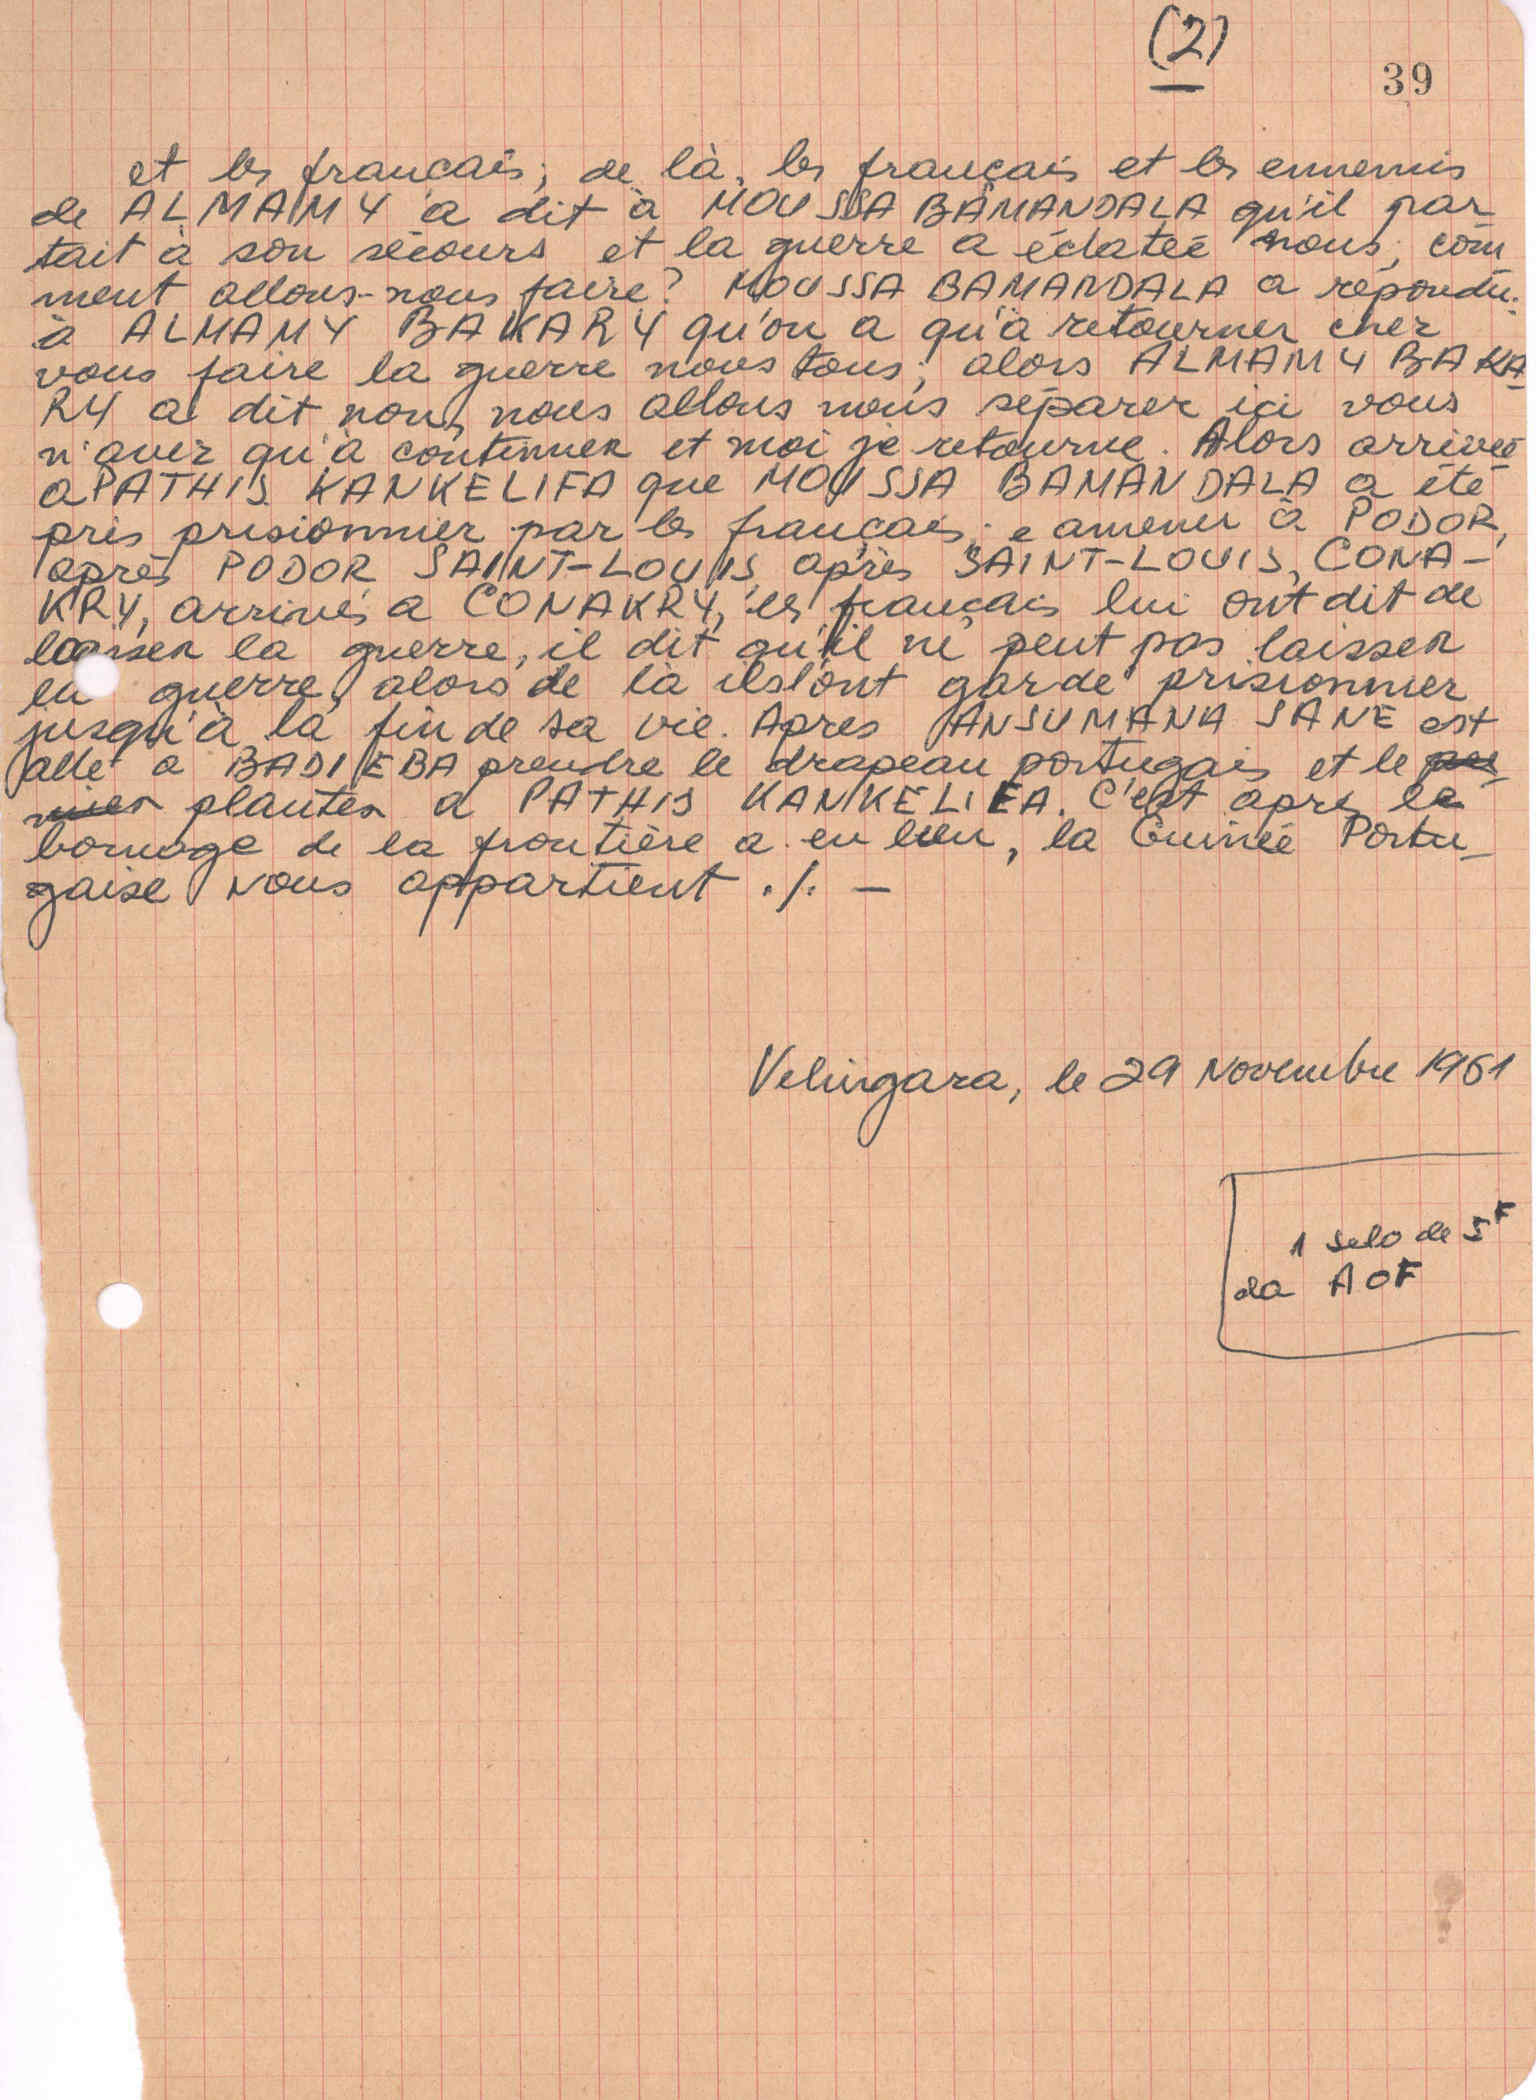 (2)
39
et les français; de là, les français et les ennemis
de ALMAMY a dit à MOUSSA BAMANDALA qu'il par
tait à son sécours et la guerre a éclatée nous, com
ment allons-nous faire? MOUSSA BAMANDALA a répondu
à ALMAMY BAKARY qu'on a qu'à retourner chez
vous faire la guerre nous tous; alors ALMAMY BAKA
RY a dit non, nous allons nous séparer ici vous
n'avez qu'à continuer et moi je retourne. Alors arrivée
a PATHIS KANKELIFA que MOUSSA BAMANDALA a été
pris prisionnier par les français, e amener à PODOR,
après PODOR SAINT-LOUIS, après SAINT-LOUIS, CONA-
KRY, arrivés a CONAKRY, les français lui ont dit de
laisser la guerre, il dit qu'il ne peut pas laisser
la guerre, alors de là ils l'ont gardé prisionnier
jusqu'à la fin de sa vie. Après ANSUMANA SANE est
allé a BADIEBA prendre le drapeau portugais et le
planter a PATHIS KANKELIFA. C'est après le
bornage de la frontière a eu lieu, la Guinée Portu-
gaise nous appartient ./. —
Velingara, le 29 Novembre 1961
1 selo de 5F
da AOF